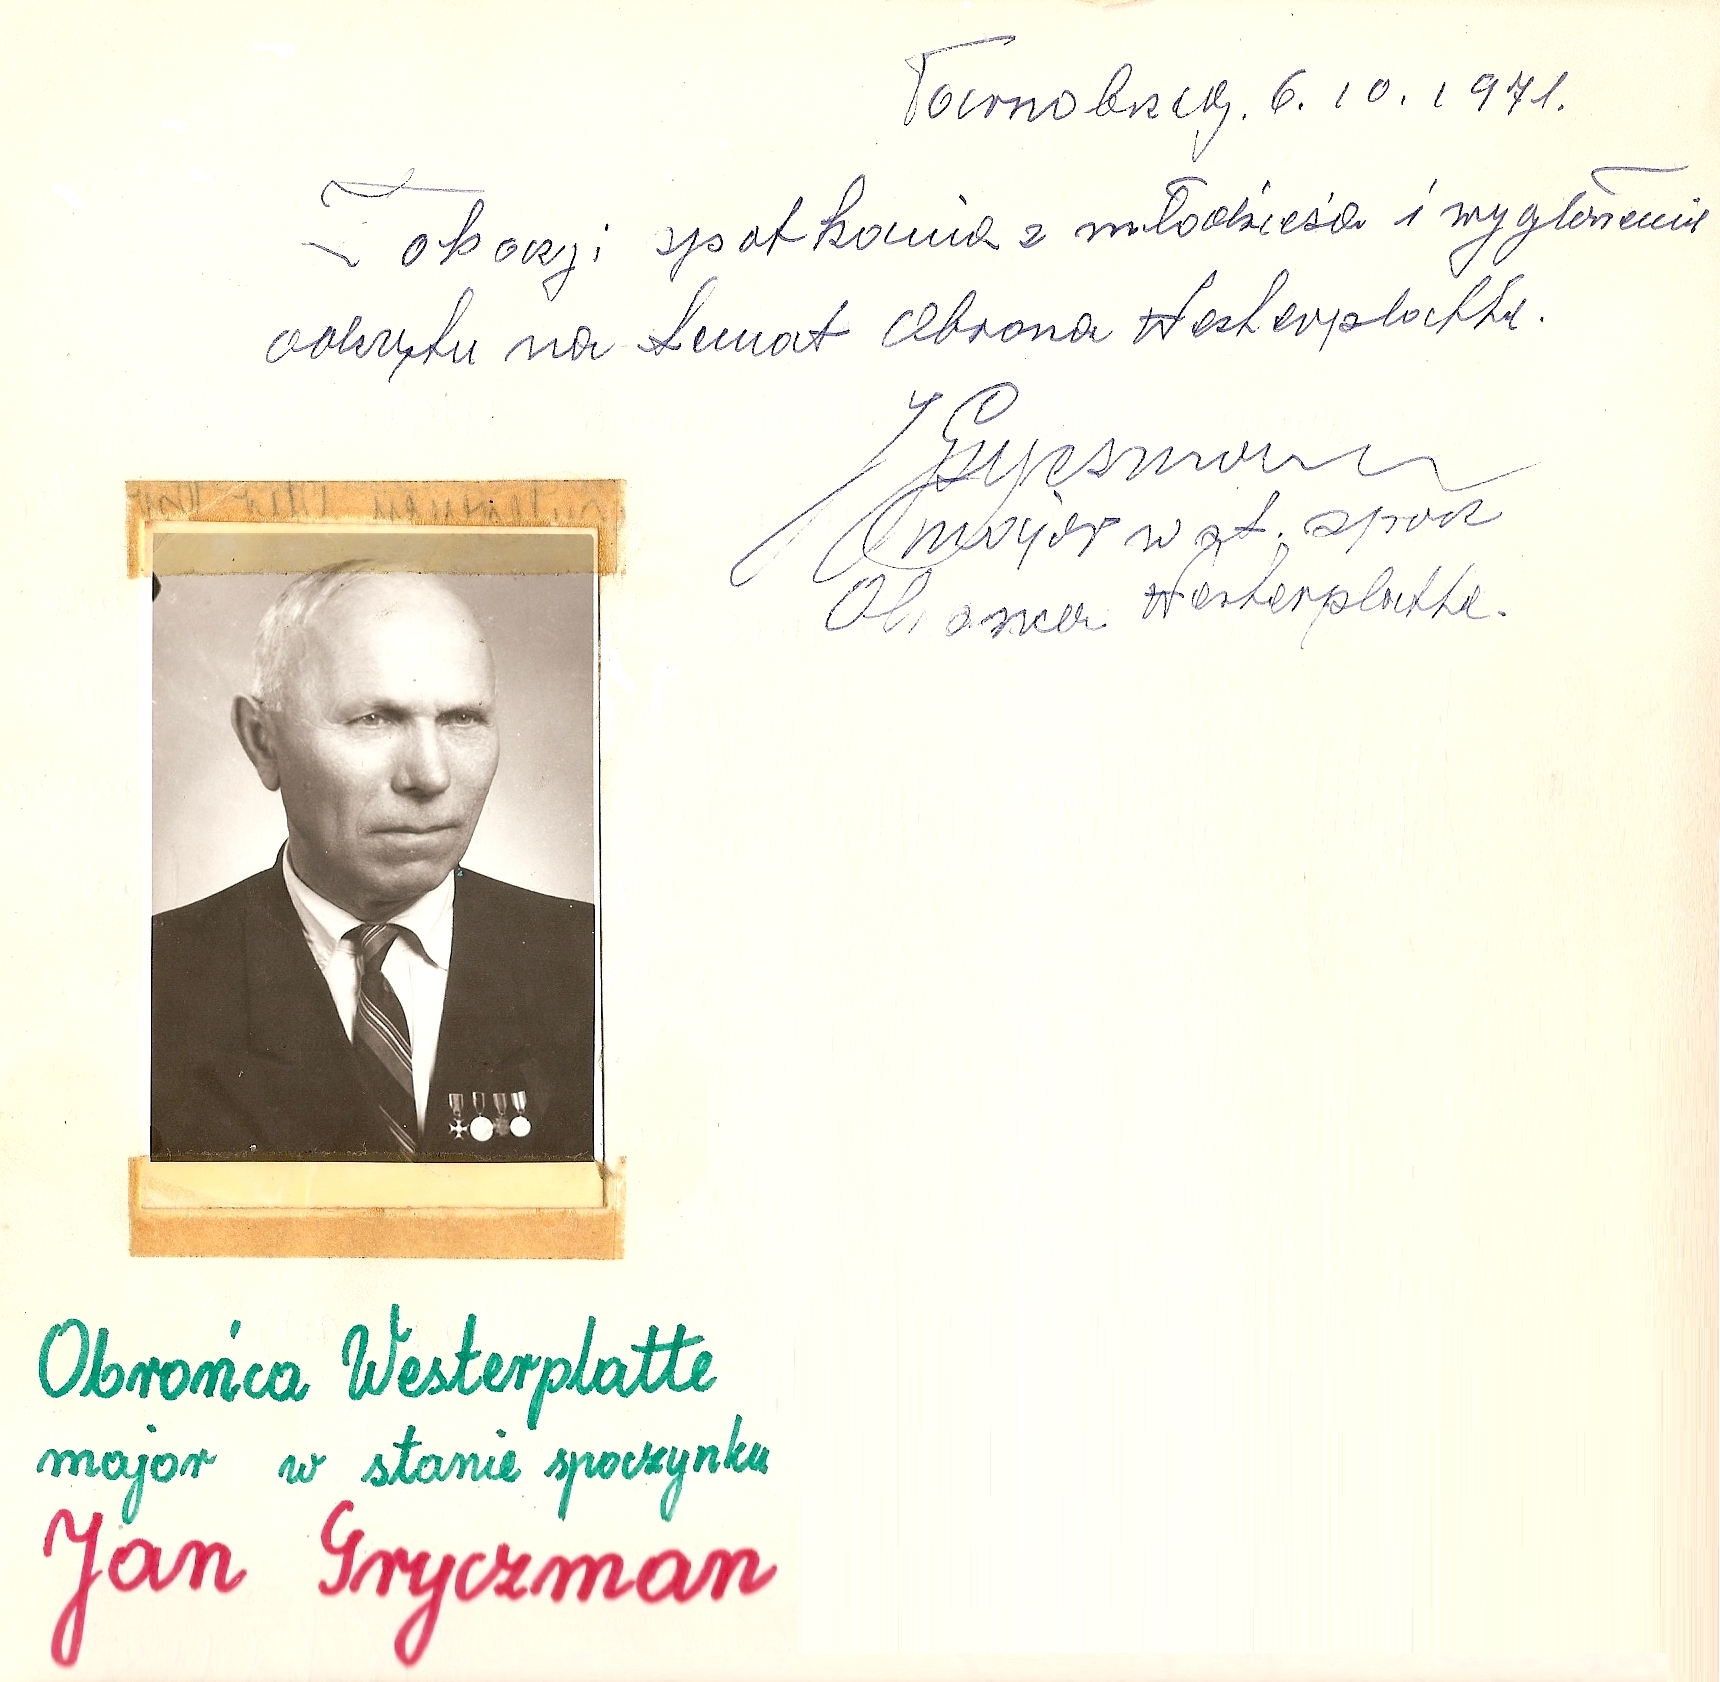 Tarnobrzeg. 6.10.1971.
Z okazji spotkania z młodzieżą i wygłoszenie
odczytu na temat Obrona Westerplatte.
J Gryczman
major w st. spocz
Obrońca Westerplatte.
Obrońca Westerplatte
major w stanie spoczynku
Jan Gryczman